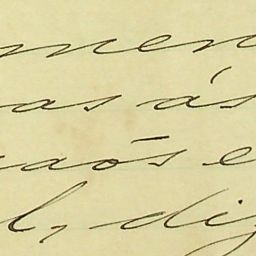 men
as ás
aõs e
l, diz